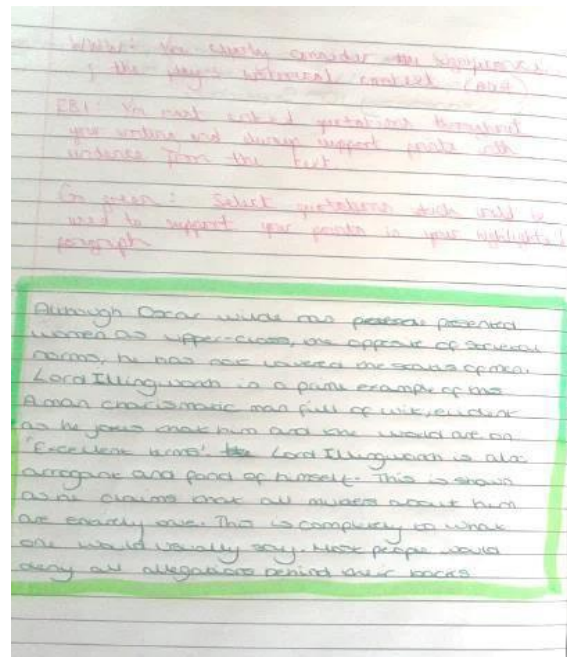 WWW: You clearly consider the significance
of the play's historical context (AO3)
EBI: You must embed quotations throughout
your writing and always support points with
evidence from the text.
Go green: Select quotations which could be
used to support your points in your highlighted
paragraph
Although Oscar Wilde has presented
women as upper-class, the opposite of societal
norms, he has not lowered the status of men.
Lord Illingworth is a prime example of this
A man charismatic man full of wit, evident
as he jokes that him and the world are on
'Excellent terms'. Lord Illingworth is also
arrogant and fond of himself. This is shown
as he claims that all about him
are entirely true. This is completely to what
one would usually say. Most people would
deny all allegations behind their backs